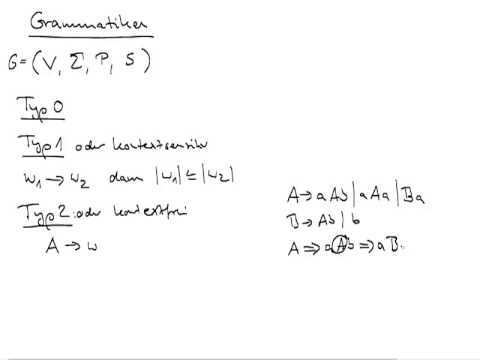 Grammatiken
G = (V, Σ, P, S)
Typ 0
Typ 1 oder kontextsensitiv
w₁ → w₂ dann |w₁| ≤ |w₂|
Typ 2: oder kontextfrei
A → w
A → aAb | aAa | Ba
B → Ab | b
A ⇒ aAb ⇒ aB